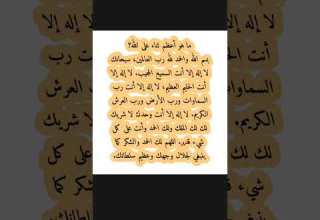 ما هو أعظم ثناء على الله؟
بسم الله والحمد لله رب العالمين، سبحانك
لا إله إلا أنت السميع المجيب، لا إله إلا
أنت الحليم العظيم، لا إله إلا أنت رب
السماوات ورب الأرض ورب العرش
الكريم. لا إله إلا أنت وحدك لا شريك
لك لك الملك ولك الحمد وأنت على كل
شيء قدير. اللهم لك الحمد والشكر كما
ينبغي لجلال وجهك وعظيم سلطانك.